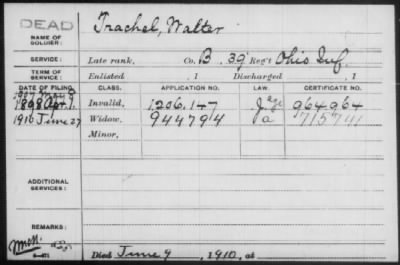 DEAD
NAME OF SOLDIER: Trachel, Walter
SERVICE: Late rank, Co. B, 39 Reg't Ohio Inf.
TERM OF SERVICE: Enlisted , 1 Discharged , 1
DATE OF FILING. CLASS. APPLICATION NO. LAW. CERTIFICATE NO.
1907 May 9
1898 Apr. 7 Invalid, 1,206,147 J age 964964
1910 June 27 Widow, 944794 a 715741
Minor,
ADDITIONAL SERVICES:
REMARKS:
Died June 9, 1910, at